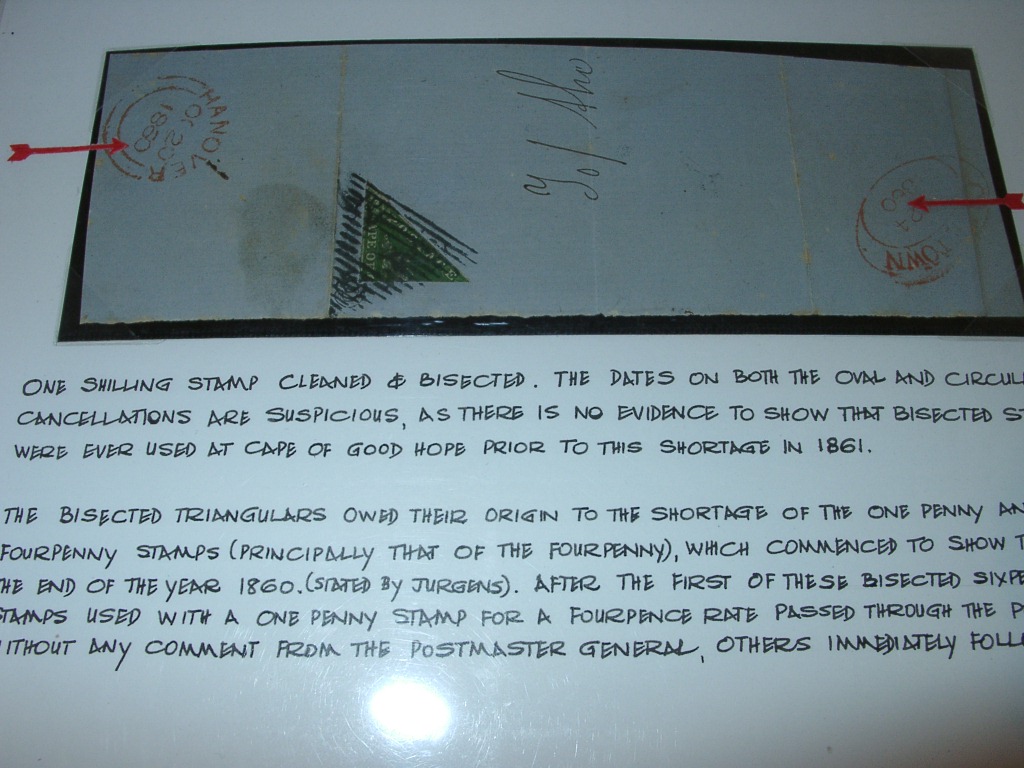 HANOVER
OC 20
1860
To/ Sho
PE OF
24
TOWN
ONE SHILLING STAMP CLEANED & BISECTED. THE DATES ON BOTH THE OVAL AND CIRCUL
CANCELLATIONS ARE SUSPICIOUS, AS THERE IS NO EVIDENCE TO SHOW THAT BISECTED ST
WERE EVER USED AT CAPE OF GOOD HOPE PRIOR TO THIS SHORTAGE IN 1861.
THE BISECTED TRIANGULARS OWED THEIR ORIGIN TO THE SHORTAGE OF THE ONE PENNY AN
FOURPENNY STAMPS (PRINCIPALLY THAT OF THE FOURPENNY), WHICH COMMENCED TO SHOW T
HE END OF THE YEAR 1860. (STATED BY JURGENS). AFTER THE FIRST OF THESE BISECTED SIXPE
STAMPS USED WITH A ONE PENNY STAMP FOR A FOURPENCE RATE PASSED THROUGH THE P
ITHOUT ANY COMMENT FROM THE POSTMASTER GENERAL, OTHERS IMMEDIATELY FOLL